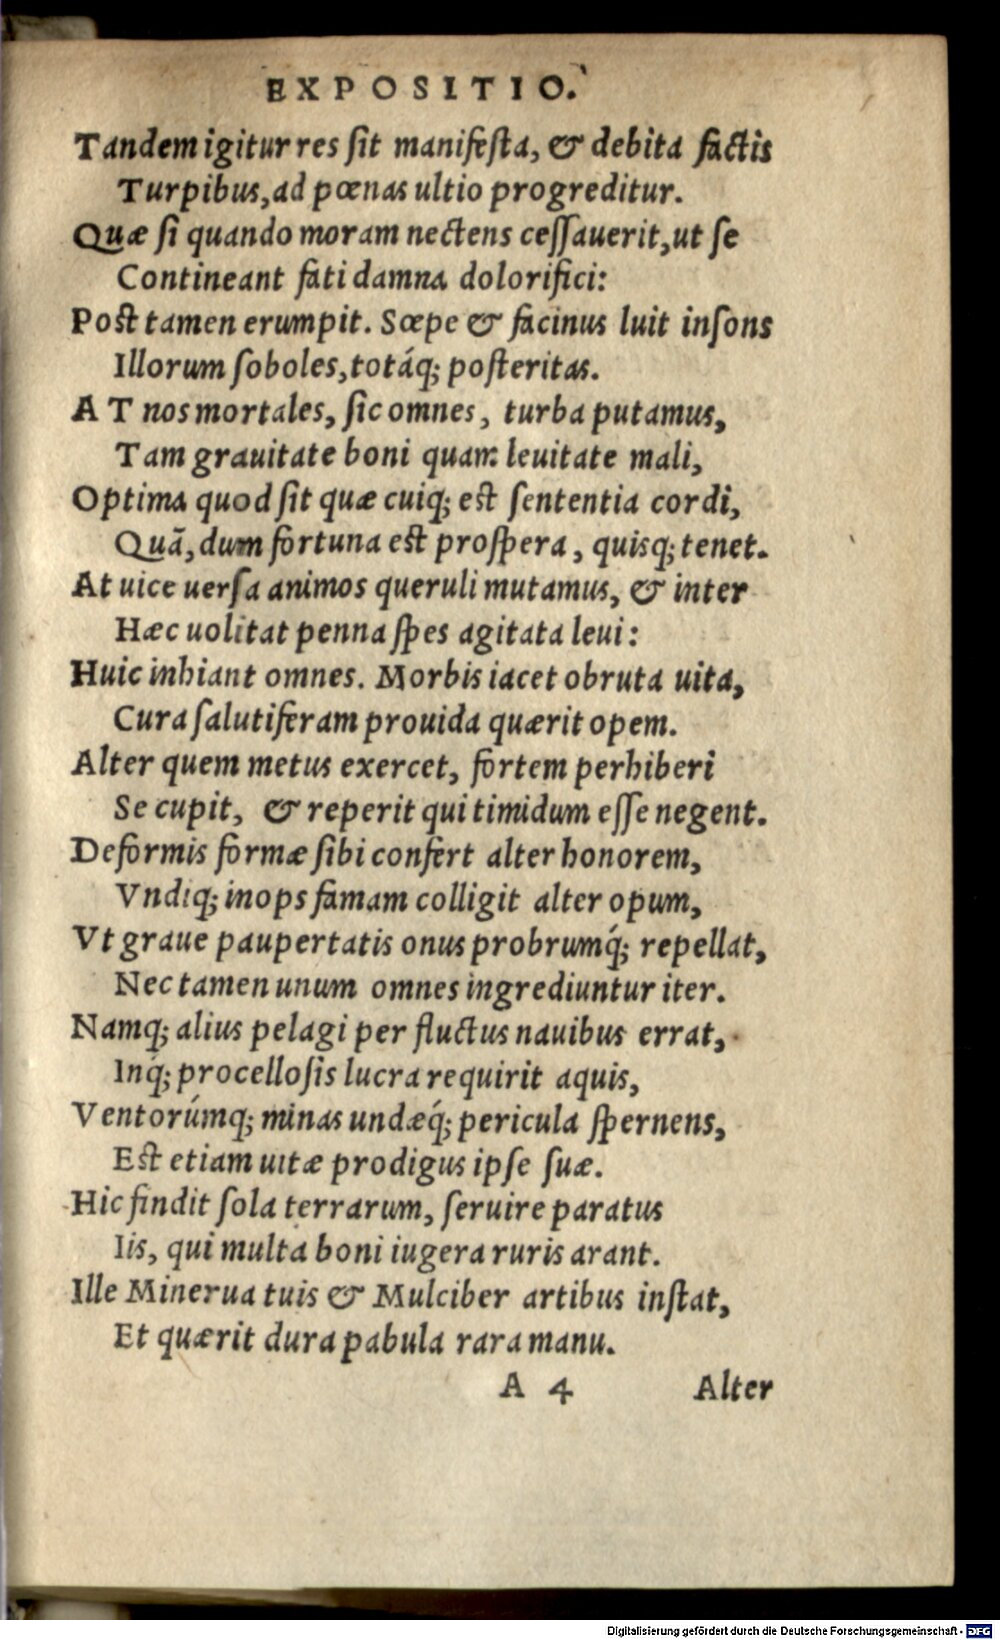 EXPOSITIO.
Tandem igitur res ſit manifeſta, & debita factis
Turpibus, ad pœnas ultio progreditur.
Quæ ſi quando moram nectens ceſſauerit, ut ſe
Contineant fati damna dolorifici:
Poſt tamen erumpit. Sœpe & facinus luit inſons
Illorum ſoboles, totáq; poſteritas.
AT nos mortales, ſic omnes, turba putamus,
Tam grauitate boni quam leuitate mali,
Optima quod ſit quæ cuiq; eſt ſententia cordi,
Quā, dum fortuna eſt proſpera, quisq; tenet.
At uice uerſa animos queruli mutamus, & inter
Hæc uolitat penna ſpes agitata leui:
Huic inhiant omnes. Morbis iacet obruta uita,
Cura ſalutiferam prouida quærit opem.
Alter quem metus exercet, fortem perhiberi
Se cupit, & reperit qui timidum eſſe negent.
Deformis formæ ſibi confert alter honorem,
Vndiq; inops famam colligit alter opum,
Vt graue paupertatis onus probrumq́; repellat,
Nec tamen unum omnes ingrediuntur iter.
Namq; alius pelagi per fluctus nauibus errat,
Inq́; procelloſis lucra requirit aquis,
Ventorúmq; minas undæq́; pericula ſpernens,
Eſt etiam uitæ prodigus ipſe ſuæ.
Hic findit ſola terrarum, ſeruire paratus
Iis, qui multa boni iugera ruris arant.
Ille Minerua tuis & Mulciber artibus inſtat,
Et quærit dura pabula rara manu.
A 4 Alter
Digitalisierung gefördert durch die Deutsche Forschungsgemeinschaft - DFG